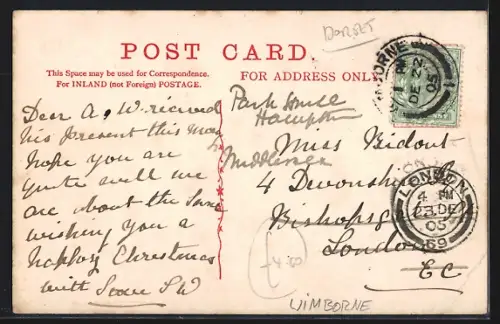 DORSET
POST CARD.
This Space may be used for Correspondence.
For INLAND (not Foreign) POSTAGE.
FOR ADDRESS ONLY
DE 22
05
Dear A, W. recieved
his present this morg
hope you are
quite well we
are about the same
wishing you a
happy Christmas
with love SW
Park House
Hampton
Middlesex
Miss Bidout
4 Devonshire
Bishopsg
London
EC
LONDON
4 PM
23 DE
05
69
£4.50
WIMBORNE